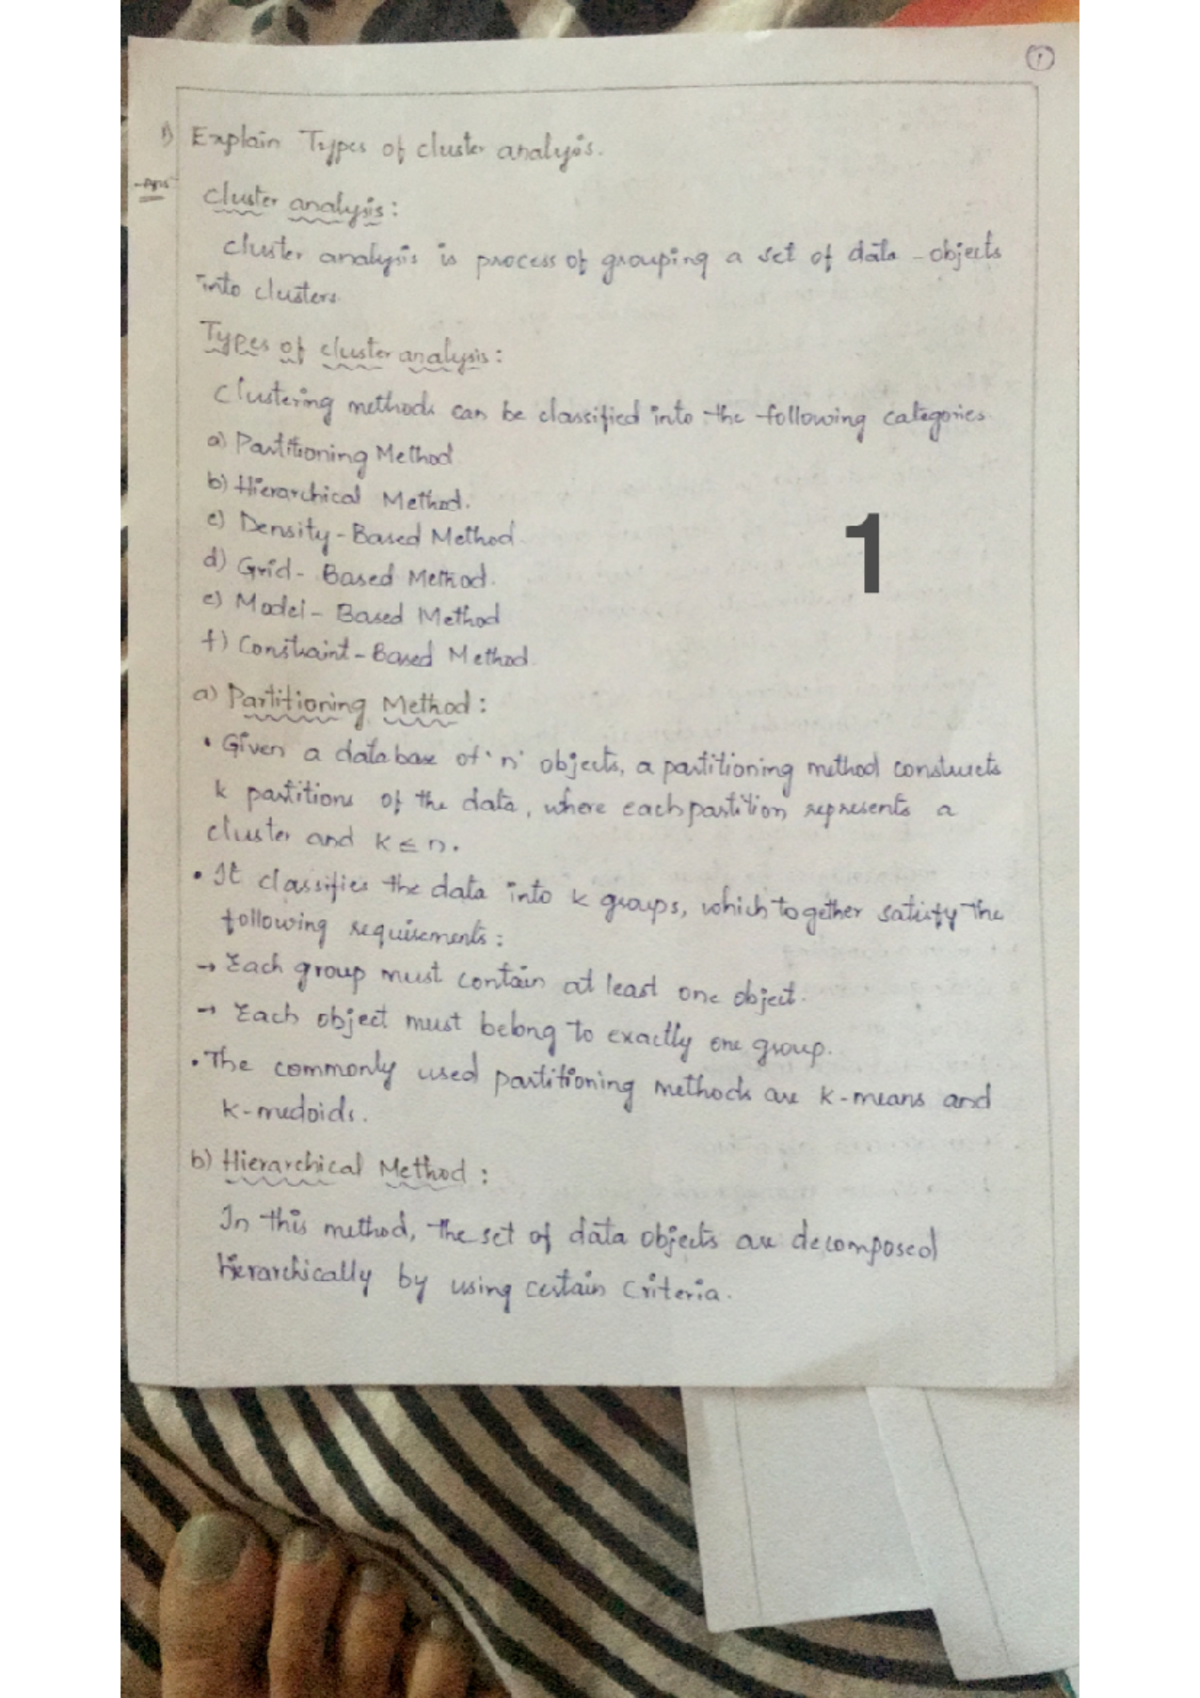 1
1) Explain Types of cluster analysis.
Ans
cluster analysis:
cluster analysis is process of grouping a set of data-objects
into clusters.
Types of cluster analysis:
Clustering methods can be classified into the following categories.
a) Partitioning Method
b) Hierarchical Method.
c) Density-Based Method
d) Grid-Based Method.
e) Model-Based Method
f) Constraint-Based Method.
1
a) Partitioning Method:
• Given a database of 'n' objects, a partitioning method constructs
k partitions of the data, where each partition represents a
cluster and k ≤ n.
• It classifies the data into k groups, which together satisfy the
following requirements:
→ Each group must contain at least one object.
→ Each object must belong to exactly one group.
• The commonly used partitioning methods are k-means and
k-medoids.
b) Hierarchical Method:
In this method, the set of data objects are decomposed
hierarchically by using certain criteria.